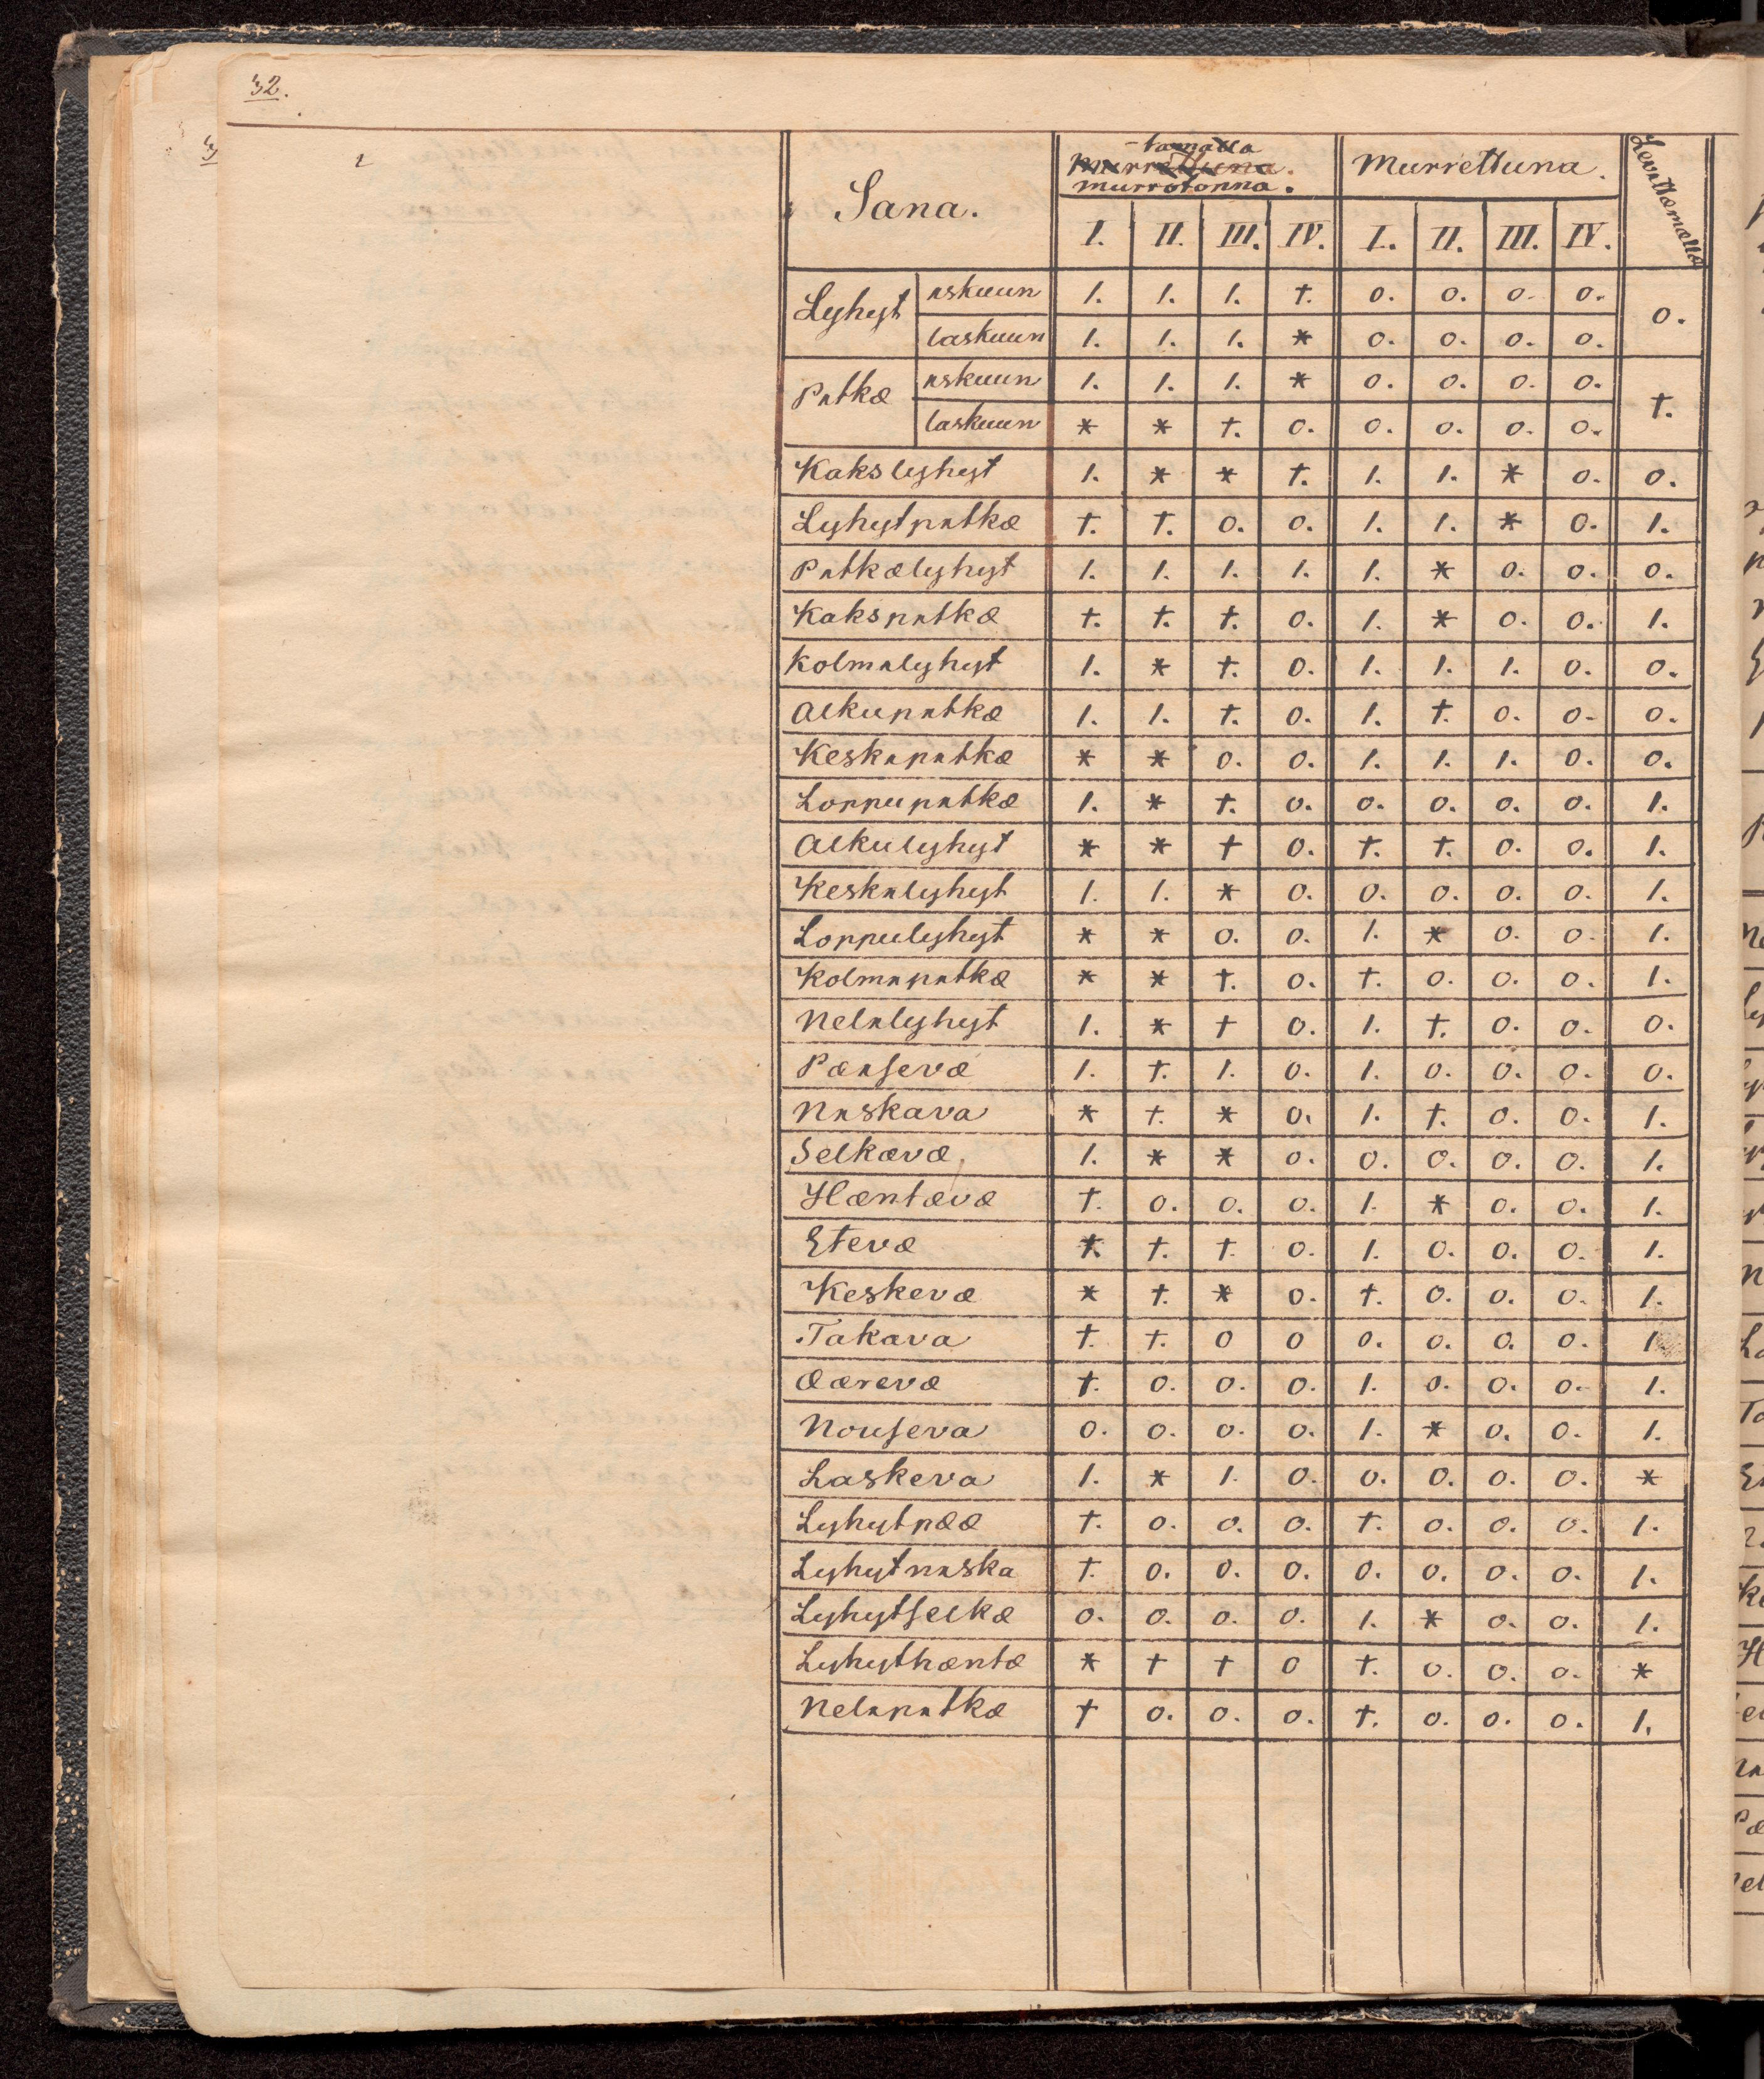 32.
Sana. tavalla Murrettuna. murrotonna. Murrettuna.
I. II. III. IV. I. II. III. IV.
Lyhyt ıskuun 1. 1. 1. †. 0. 0. 0. 0. 0.
laskuun 1. 1. 1. * 0. 0. 0. 0.
Pıtkæ ıskuun 1. 1. 1. * 0. 0. 0. 0. †.
laskuun * * †. 0. 0. 0. 0. 0.
Kakslyhyt 1. * * †. 1. 1. * 0. 0.
Lyhytpıtkæ †. †. 0. 0. 1. 1. * 0. 1.
Pıtkælyhyt 1. 1. 1. 1. 1. * 0. 0. 0.
Kakspıtkæ †. †. †. 0. 1. * 0. 0. 1.
Kolmılyhyt 1. * †. 0. 1. 1. 1. 0. 0.
Alkupıtkæ 1. 1. †. 0. 1. †. 0. 0. 0.
Keskıpıtkæ * * 0. 0. 1. 1. 1. 0. 0.
Loppupıtkæ 1. * †. 0. 0. 0. 0. 0. 1.
Alkulyhyt * * † 0. †. †. 0. 0. 1.
Keskılyhyt 1. 1. * 0. 0. 0. 0. 0. 1.
Loppulyhyt * * 0. 0. 1. * 0. 0. 1.
Kolmıpıtkæ * * †. 0. †. 0. 0. 0. 1.
Nelılyhyt 1. * † 0. 1. †. 0. 0. 0.
Pæıſevæ 1. †. 1. 0. 1. 0. 0. 0. 0.
Nıskava * †. * 0. 1. †. 0. 0. 1.
Selkævæ 1. * * 0. 0. 0. 0. 0. 1.
Hæntævæ †. 0. 0. 0. 1. * 0. 0. 1.
Etevæ *. †. †. 0. 1. 0. 0. 0. 1.
Keskevæ * †. * 0. †. 0. 0. 0. 1.
Takava †. †. 0 0 0. 0. 0. 0. 1.
Æærevæ †. 0. 0. 0. 1. 0. 0. 0. 1.
Nouſeva 0. 0. 0. 0. 1. * 0. 0. 1.
Laskeva 1. * 1. 0. 0. 0. 0. 0. *
Lyhytpææ †. 0. 0. 0. †. 0. 0. 0. 1.
Lyhytnıska †. 0. 0. 0. 0. 0. 0. 0. 1.
Lyhytſelkæ 0. 0. 0. 0. 1. * 0. 0. 1.
Lyhythæntæ * † † 0 †. 0. 0. 0. *
Nelıpıtkæ † 0. 0. 0. †. 0. 0. 0. 1.